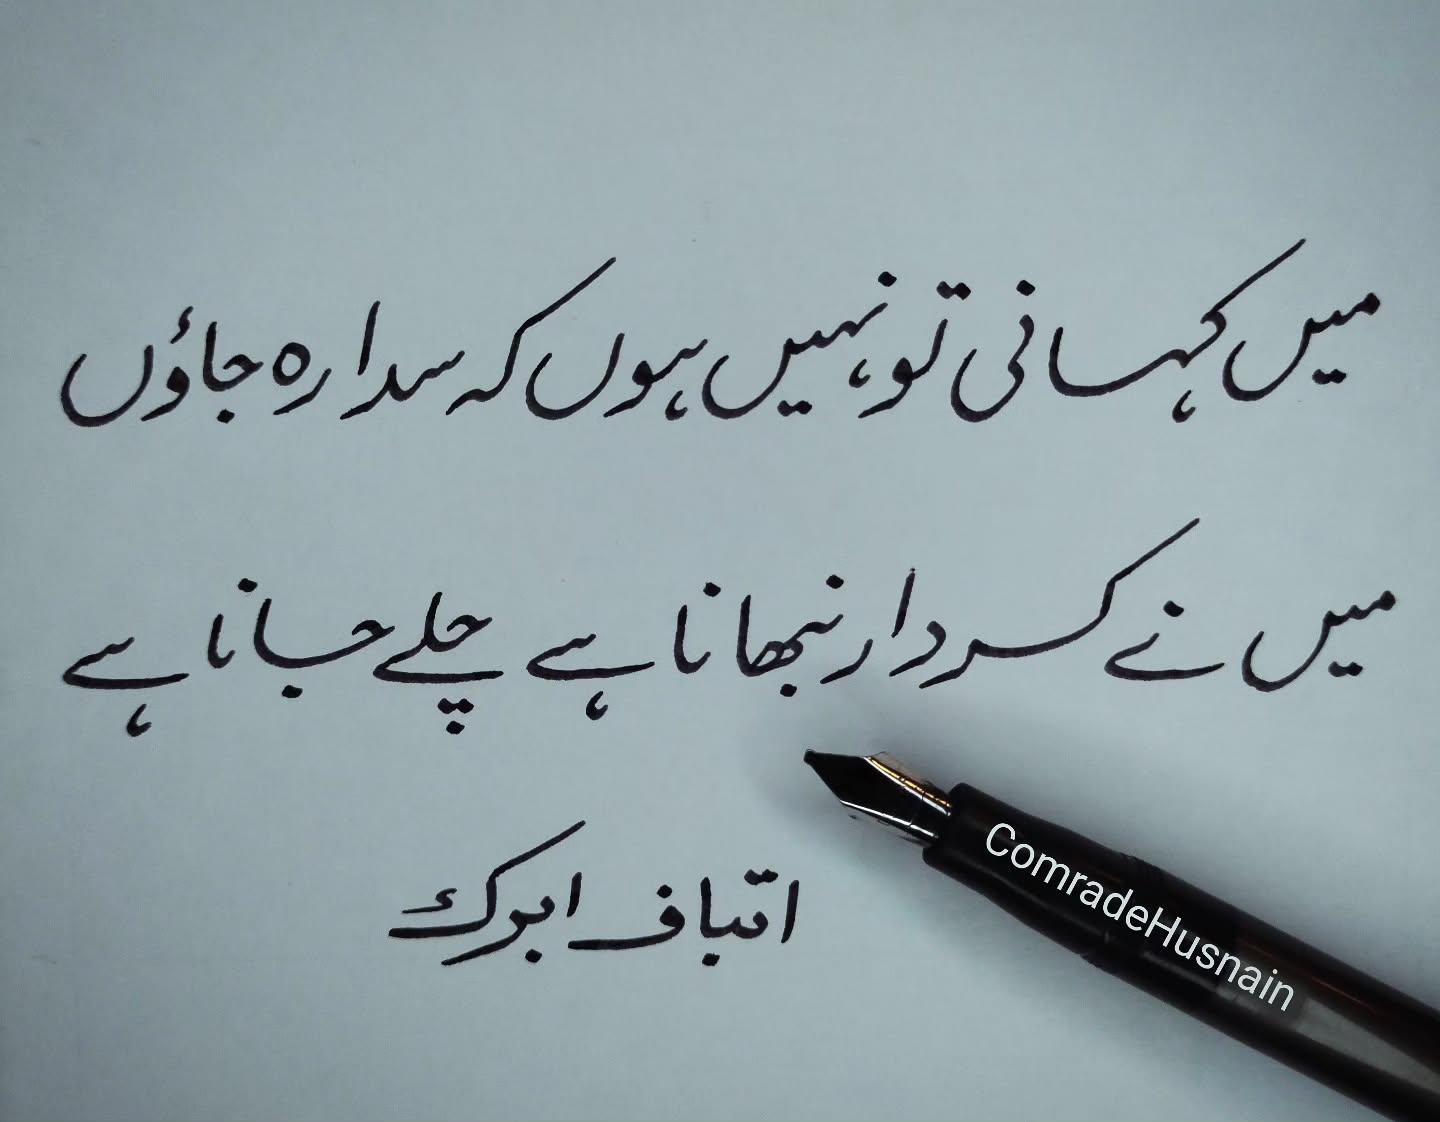 میں کہانی تو نہیں ہوں کہ سدا رہ جاؤں
میں نے کردار نبھانا ہے چلے جانا ہے
اتباف ابرک
ComradeHusnain